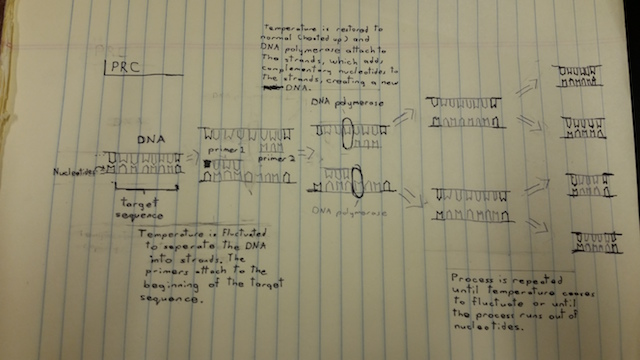 PRC
Temperature is restored to
normal (heated up) and
DNA polymerase attach to
The strands, which adds
complementary nucleotides to
The strands, creating a new
DNA.
DNA polymerase
DNA
primer 1
primer 2
Nucleotides
target
sequence
DNA polymerase
Temperature is fluctuated
to seperate the DNA
into strands. The
primers attach to the
beginning of the target
sequence.
Process is repeated
until temperature ceases
to fluctuate or until
the process runs out of
nucleotides.